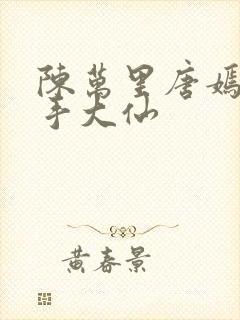 陳萬里唐嫣
手大仙
黄春景